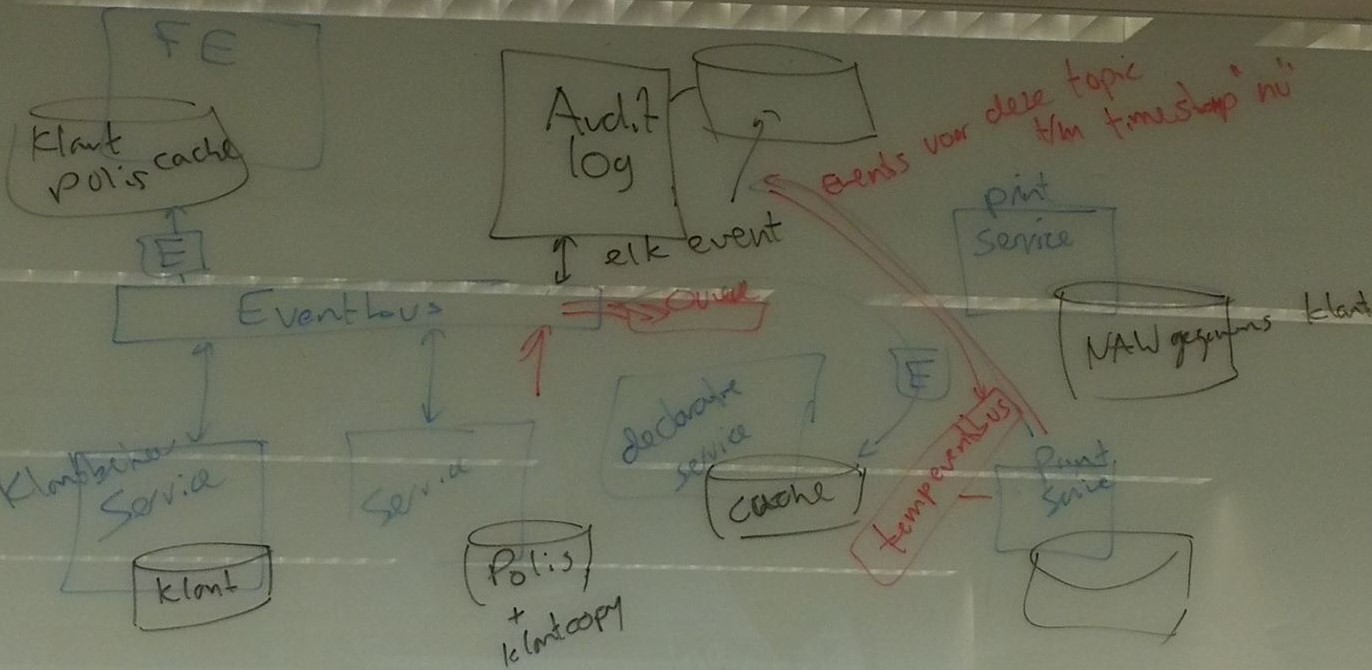 FE
Klant
polis cache
E
Audit
log
elk event
events voor deze topic
t/m timestamp "nu"
print
service
NAW gegevens klant
Eventbus
Queue
E
declaratie
service
cache
tempeventbus
Print
service
Klantbeheer
Service
klant
Service
Polis
+
klantcopy